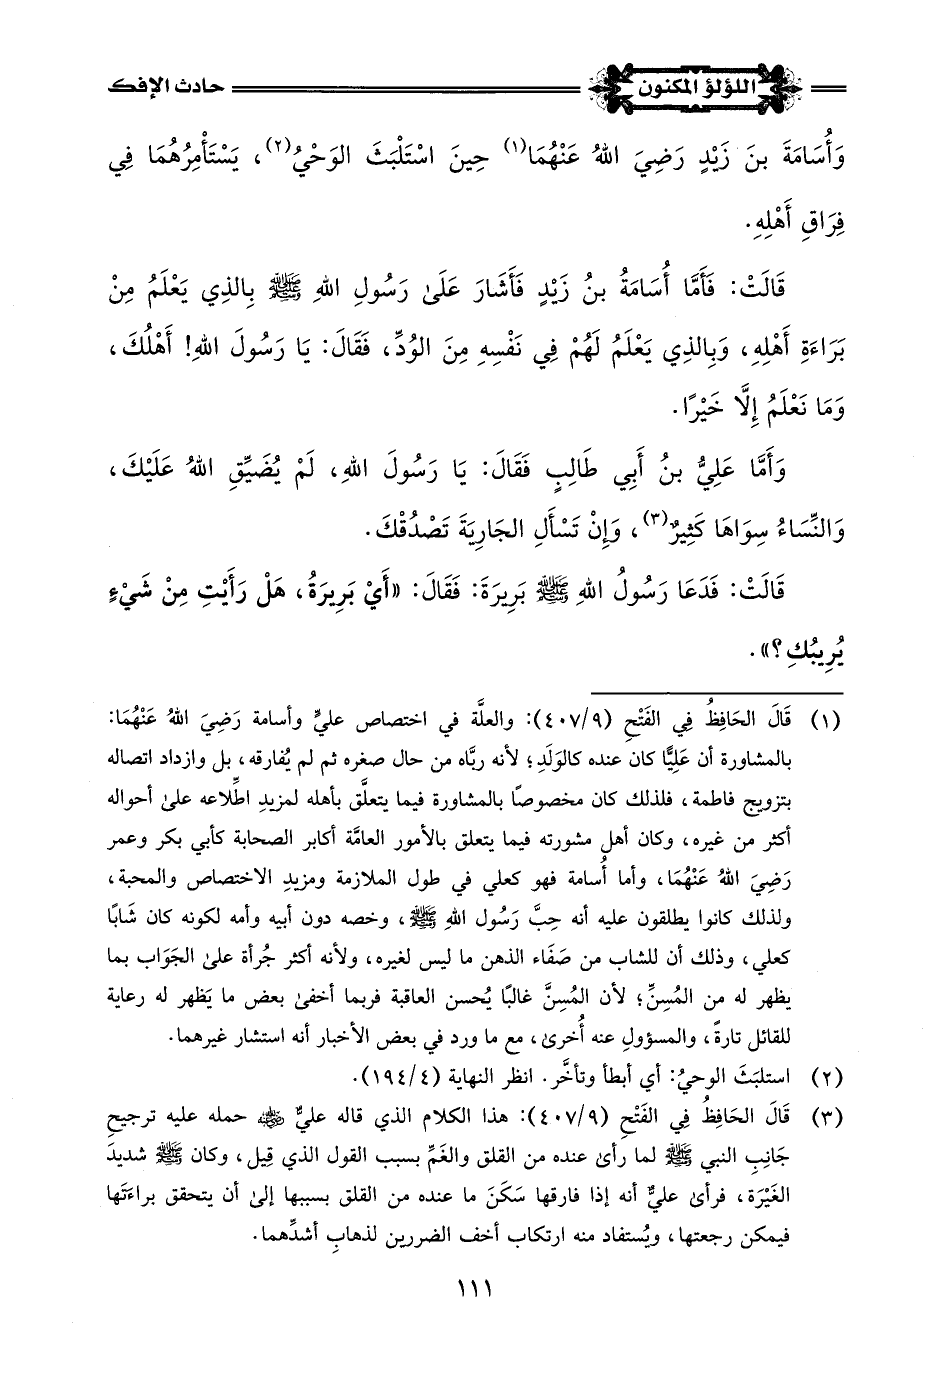 اللؤلؤ المكنون حادث الإفك
وَأُسَامَةَ بنَ زَيْدٍ رَضِيَ اللهُ عَنْهُمَا(١) حِينَ اسْتَلْبَثَ الوَحْيُ(٢)، يَسْتَأْمِرُهُمَا فِي
فِرَاقِ أَهْلِهِ.
قَالَتْ: فَأَمَّا أُسَامَةُ بنُ زَيْدٍ فَأَشَارَ عَلَىٰ رَسُولِ اللهِ ﷺ بِالذِي يَعْلَمُ مِنْ
بَرَاءَةِ أَهْلِهِ، وَبِالذِي يَعْلَمُ لَهُمْ فِي نَفْسِهِ مِنَ الوُدِّ، فَقَالَ: يَا رَسُولَ اللهِ! أَهْلُكَ،
وَمَا نَعْلَمُ إِلَّا خَيْرًا.
وَأَمَّا عَلِيُّ بنُ أَبِي طَالِبٍ فَقَالَ: يَا رَسُولَ اللهِ، لَمْ يُضَيِّقِ اللهُ عَلَيْكَ،
وَالنِّسَاءُ سِوَاهَا كَثِيرٌ(٣)، وَإِنْ تَسْأَلِ الجَارِيَةَ تَصْدُقْكَ.
قَالَتْ: فَدَعَا رَسُولُ اللهِ ﷺ بَرِيرَةَ: فَقَالَ: «أَيْ بَرِيرَةُ، هَلْ رَأَيْتِ مِنْ شَيْءٍ
يُرِيبُكِ؟».
(١) قَالَ الحَافِظُ فِي الفَتْحِ (٤٠٧/٩): والعلَّة في اختصاص عليٍّ وأسامة رَضِيَ اللهُ عَنْهُمَا:
بالمشاورة أن عَلِيًّا كان عنده كالوَلَدِ؛ لأنه ربَّاه من حال صغره ثم لم يُفارقه، بل وازداد اتصاله
بتزويج فاطمة، فلذلك كان مخصوصًا بالمشاورة فيما يتعلَّق بأهله لمزيدِ اطِّلاعه علىٰ أحواله
أكثر من غيره، وكان أهل مشورته فيما يتعلق بالأمور العامَّة أكابر الصحابة كأبي بكر وعمر
رَضِيَ اللهُ عَنْهُمَا، وأما أُسامة فهو كعلي في طول الملازمة ومزيدِ الاختصاص والمحبة،
ولذلك كانوا يطلقون عليه أنه حِبَّ رَسُول اللهِ ﷺ، وخصه دون أبيه وأمه لكونه كان شَابًا
كعلي، وذلك أن للشاب من صَفَاء الذهن ما ليس لغيره، ولأنه أكثر جُرأة علىٰ الجَوَاب بما
يظهر له من المُسِنِّ؛ لأن المُسِنَّ غالبًا يُحسن العاقبة فربما أخفىٰ بعض ما يَظهر له رعاية
للقائل تارةً، والمسؤولِ عنه أُخرىٰ، مع ما ورد في بعض الأخبار أنه استشار غيرهما.
(٢) استلبَثَ الوحيُ: أي أبطأ وتأخَّر. انظر النهاية (١٩٤/٤).
(٣) قَالَ الحَافِظُ فِي الفَتْحِ (٤٠٧/٩): هذا الكلام الذي قاله عليٌّ رضي الله عنه حمله عليه ترجيحِ
جَانِبِ النبي ﷺ لما رأىٰ عنده من القلق والغَمِّ بسبب القول الذي قِيل، وكان ﷺ شديدَ
الغَيْرَة، فرأىٰ عليٌّ أنه إذا فارقها سَكَنَ ما عنده من القلق بسببها إلىٰ أن يتحقق براءَتَها
فيمكن رجعتها، ويُستفاد منه ارتكاب أخف الضررين لذهابِ أشدِّهما.
١١١